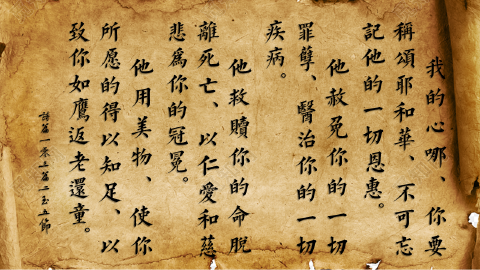 我的心哪、你要
稱頌耶和華、不可忘
記他的一切恩惠。
他赦免你的一切
罪孽、醫治你的一切
疾病。
他救贖你的命脫
離死亡、以仁愛和慈
悲爲你的冠冕。
他用美物、使你
所愿的得以知足、以
致你如鷹返老還童。
詩篇一零三篇二至五節